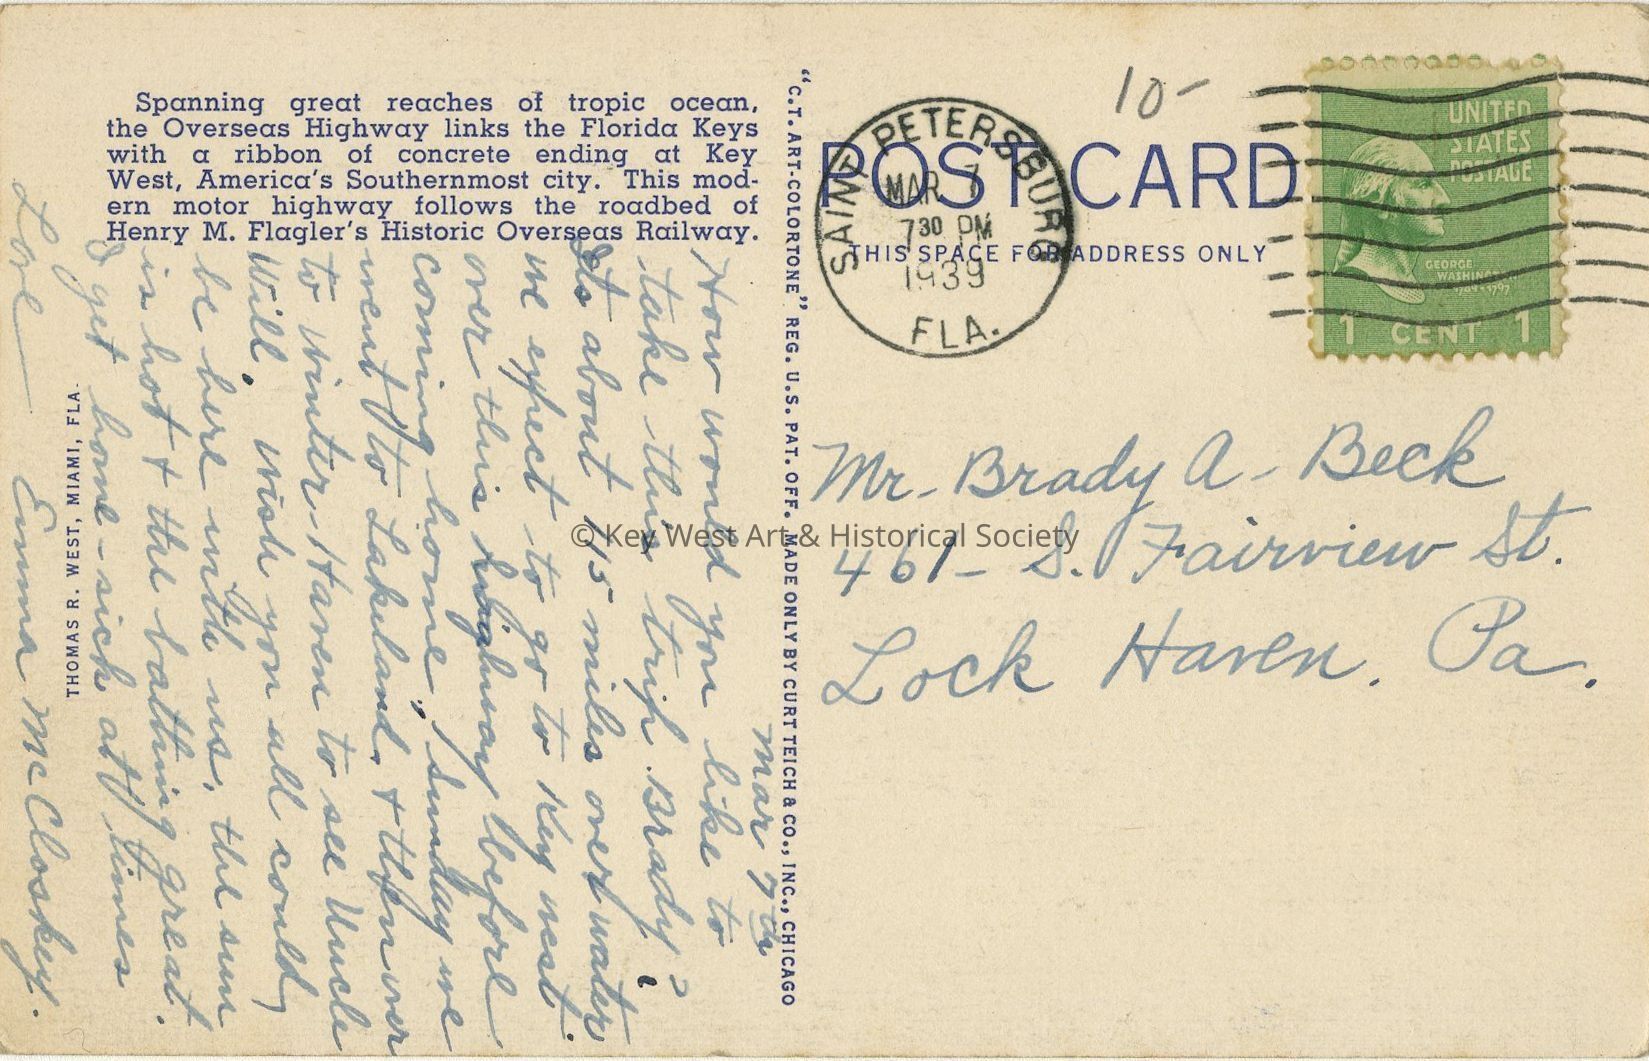 Spanning great reaches of tropic ocean,
the Overseas Highway links the Florida Keys
with a ribbon of concrete ending at Key
West, America's Southernmost city. This mod-
ern motor highway follows the roadbed of
Henry M. Flagler's Historic Overseas Railway.
Mar 7th
How would you like to
take this trip Brady?
Its about 45 miles over water
we expect to go to Key West.
over this highway before
coming home, Sunday we
went to Lakeland, & then over
to Winter-Haven to see Uncle
Will. wish you all could
be here with us. the sun
is hot & the bathing great.
I get home-sick at times
Love — Emma McCloskey.
THOMAS R. WEST, MIAMI, FLA.
"C.T. ART-COLORTONE" REG. U.S. PAT. OFF. MADE ONLY BY CURT TEICH & CO., INC., CHICAGO
10-
POST CARD
THIS SPACE FOR ADDRESS ONLY
SAINT PETERSBURG
MAR 7
7 30 PM
1939
FLA.
UNITED
STATES
POSTAGE
GEORGE
WASHINGTON
1789-1797
1 CENT 1
Mr. Brady A. Beck
461 - S. Fairview St.
Lock Haven, Pa.
© Key West Art & Historical Society